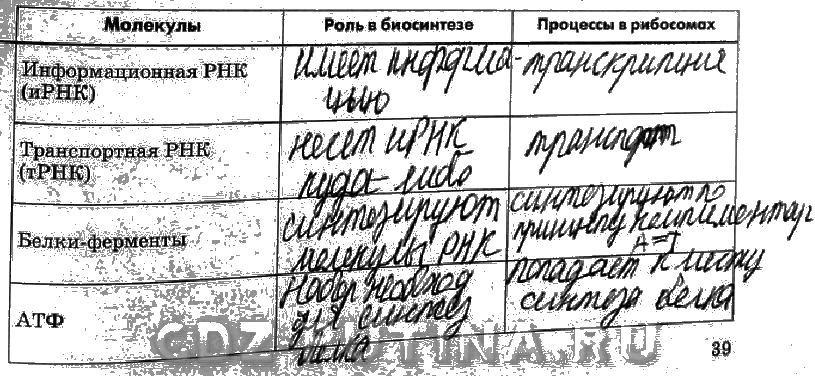 Молекулы Роль в биосинтезе Процессы в рибосомах
Информационная РНК имеет информа- транскрипция
(иРНК) цию
Транспортная РНК несет иРНК транспорт
(тРНК) куда-либо
Белки-ферменты синтезируют синтезируют по
молекулы РНК принципу
А=Т
АТФ Набор необход попадает к месту
для синтез синтеза белка
белка
39